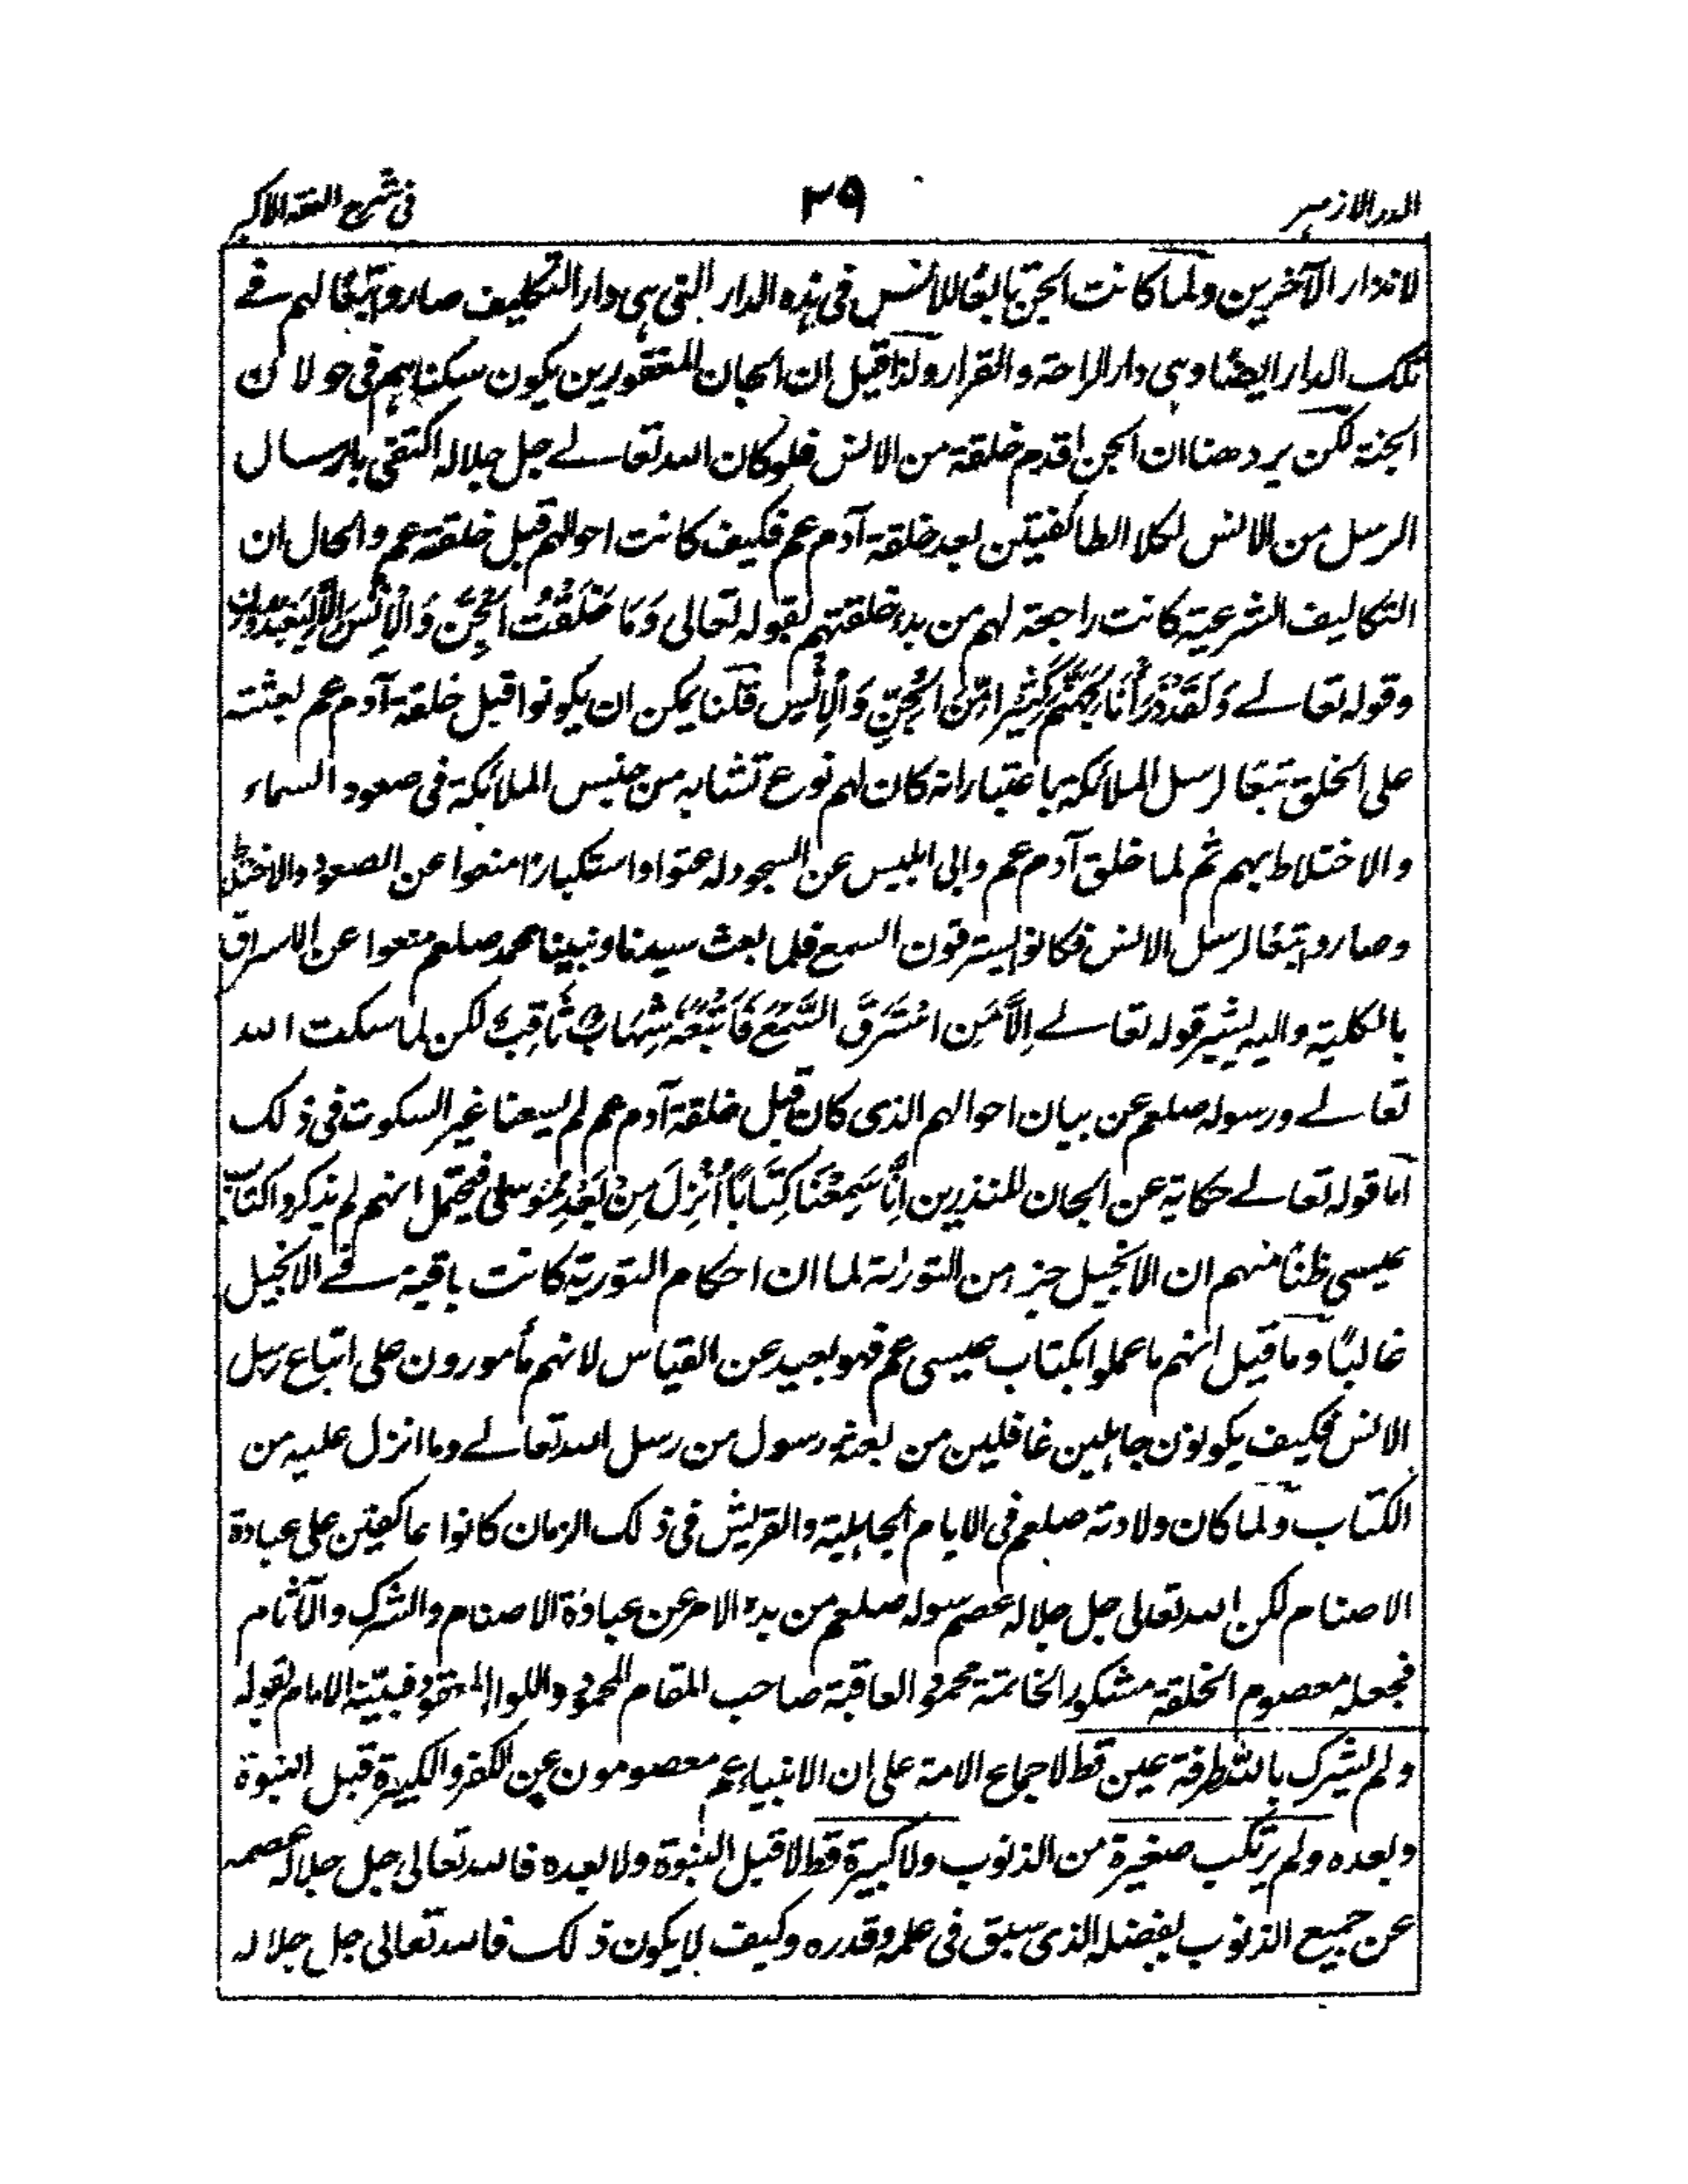 الدر الازهر ٢٩ فى شرح الفقه الاكبر
لانذار الآخرين ولما كانت الجن تابعًا للانس فى هذه الدار التى هى دار التكليف صاروا تبعًا لهم فى
تلك الدار ايضًا وهى دار الراحة والقرار ولذا قيل ان الجان المغفورين يكون سكناهم فى حولان
الجنة لكن يرد ههنا ان الجن اقدم خلقة من الانس فلو كان الله تعالى جل جلاله اكتفى بارسال
الرسل من الانس لكلا الطائفتين بعد خلقة آدم عم فكيف كانت احوالهم قبل خلقته عم والحال ان
التكاليف الشرعية كانت راجعة لهم من بدء خلقتهم لقوله تعالى وَمَا خَلَقْتُ الْجِنَّ وَالْإِنْسَ إِلَّا لِيَعْبُدُونِ
وقوله تعالى وَلَقَدْ ذَرَأْنَا لِجَهَنَّمَ كَثِيْرًا مِّنَ الْجِنِّ وَالْإِنْسِ قلنا يمكن ان يكونوا قبل خلقة آدم عم بعثته
على الخلق تبعًا لرسل الملائكة باعتبار انه كان لهم نوع تشابه من جنس الملائكة فى صعود السماء
والاختلاط بهم ثم لما خلق آدم عم وابى ابليس عن السجود له عتوا واستكبارًا منعوا عن الصعود والاختلاط
وصاروا تبعًا لرسل الانس فكانوا يسترقون السمع فلما بعث سيدنا ونبينا محمد صلعم منعوا عن الاسراق
بالكلية واليه يشير قوله تعالى إِلَّا مَنِ اسْتَرَقَ السَّمْعَ فَأَتْبَعَهُ شِهَابٌ ثَاقِبٌ لكن لما سكت الله
تعالى ورسوله صلعم عن بيان احوالهم الذى كان قبل خلقة آدم عم لم يسعنا غير السكوت فى ذلك
اما قوله تعالى حكاية عن الجان المنذرين إِنَّا سَمِعْنَا كِتَابًا أُنْزِلَ مِنْ بَعْدِ مُوْسٰى فيحتمل انهم لم يذكروا كتاب
عيسى ظنًا منهم ان الانجيل جزء من التوراة لما ان احكام التورية كانت باقية فى الانجيل
غالبًا وما قيل انهم ما عملوا بكتاب عيسى عم فهو بعيد عن القياس لانهم مأمورون على اتباع رسل
الانس فكيف يكونون جاهلين غافلين من بعثة رسول من رسل الله تعالى وما انزل عليه من
الكتاب ولما كان ولادته صلعم فى الايام الجاهلية والقريش فى ذلك الزمان كانوا عاكفين على عبادة
الاصنام لكن الله تعالى جل جلاله عصم رسوله صلعم من بدء الامر عن عبادة الاصنام والشرك والآثام
فجعله معصوم الخلقة مشكور الخاتمة محمود العاقبة صاحب المقام المحمود واللواء المعقود فبينه الامام بقوله
ولم يشرك بالله طرفة عين قط لاجماع الامة على ان الانبياء عم معصومون عن الكفر والكبيرة قبل النبوة
وبعده ولم يرتكب صغيرة من الذنوب ولا كبيرة قط لا قبل النبوة ولا بعده فالله تعالى جل جلاله عصمه
عن جميع الذنوب بفضله الذى سبق فى علمه وقدره وكيف لا يكون ذلك فالله تعالى جل جلاله